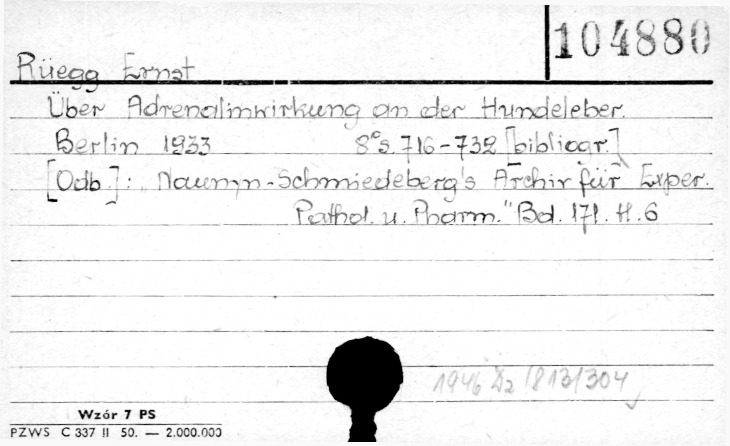 104880
Rüegg Ernst
Über Adrenalinwirkung an der Hundeleber.
Berlin 1933 8° s. 716-732 [bibliogr.]
[Odb.]: Naunyn-Schmiedeberg's Archiv für Exper.
Pathol. u. Pharm." Bd. 171. H. 6
1946 1813/304
Wzór 7 PS
PZWS C 337 II 50. — 2.000.000